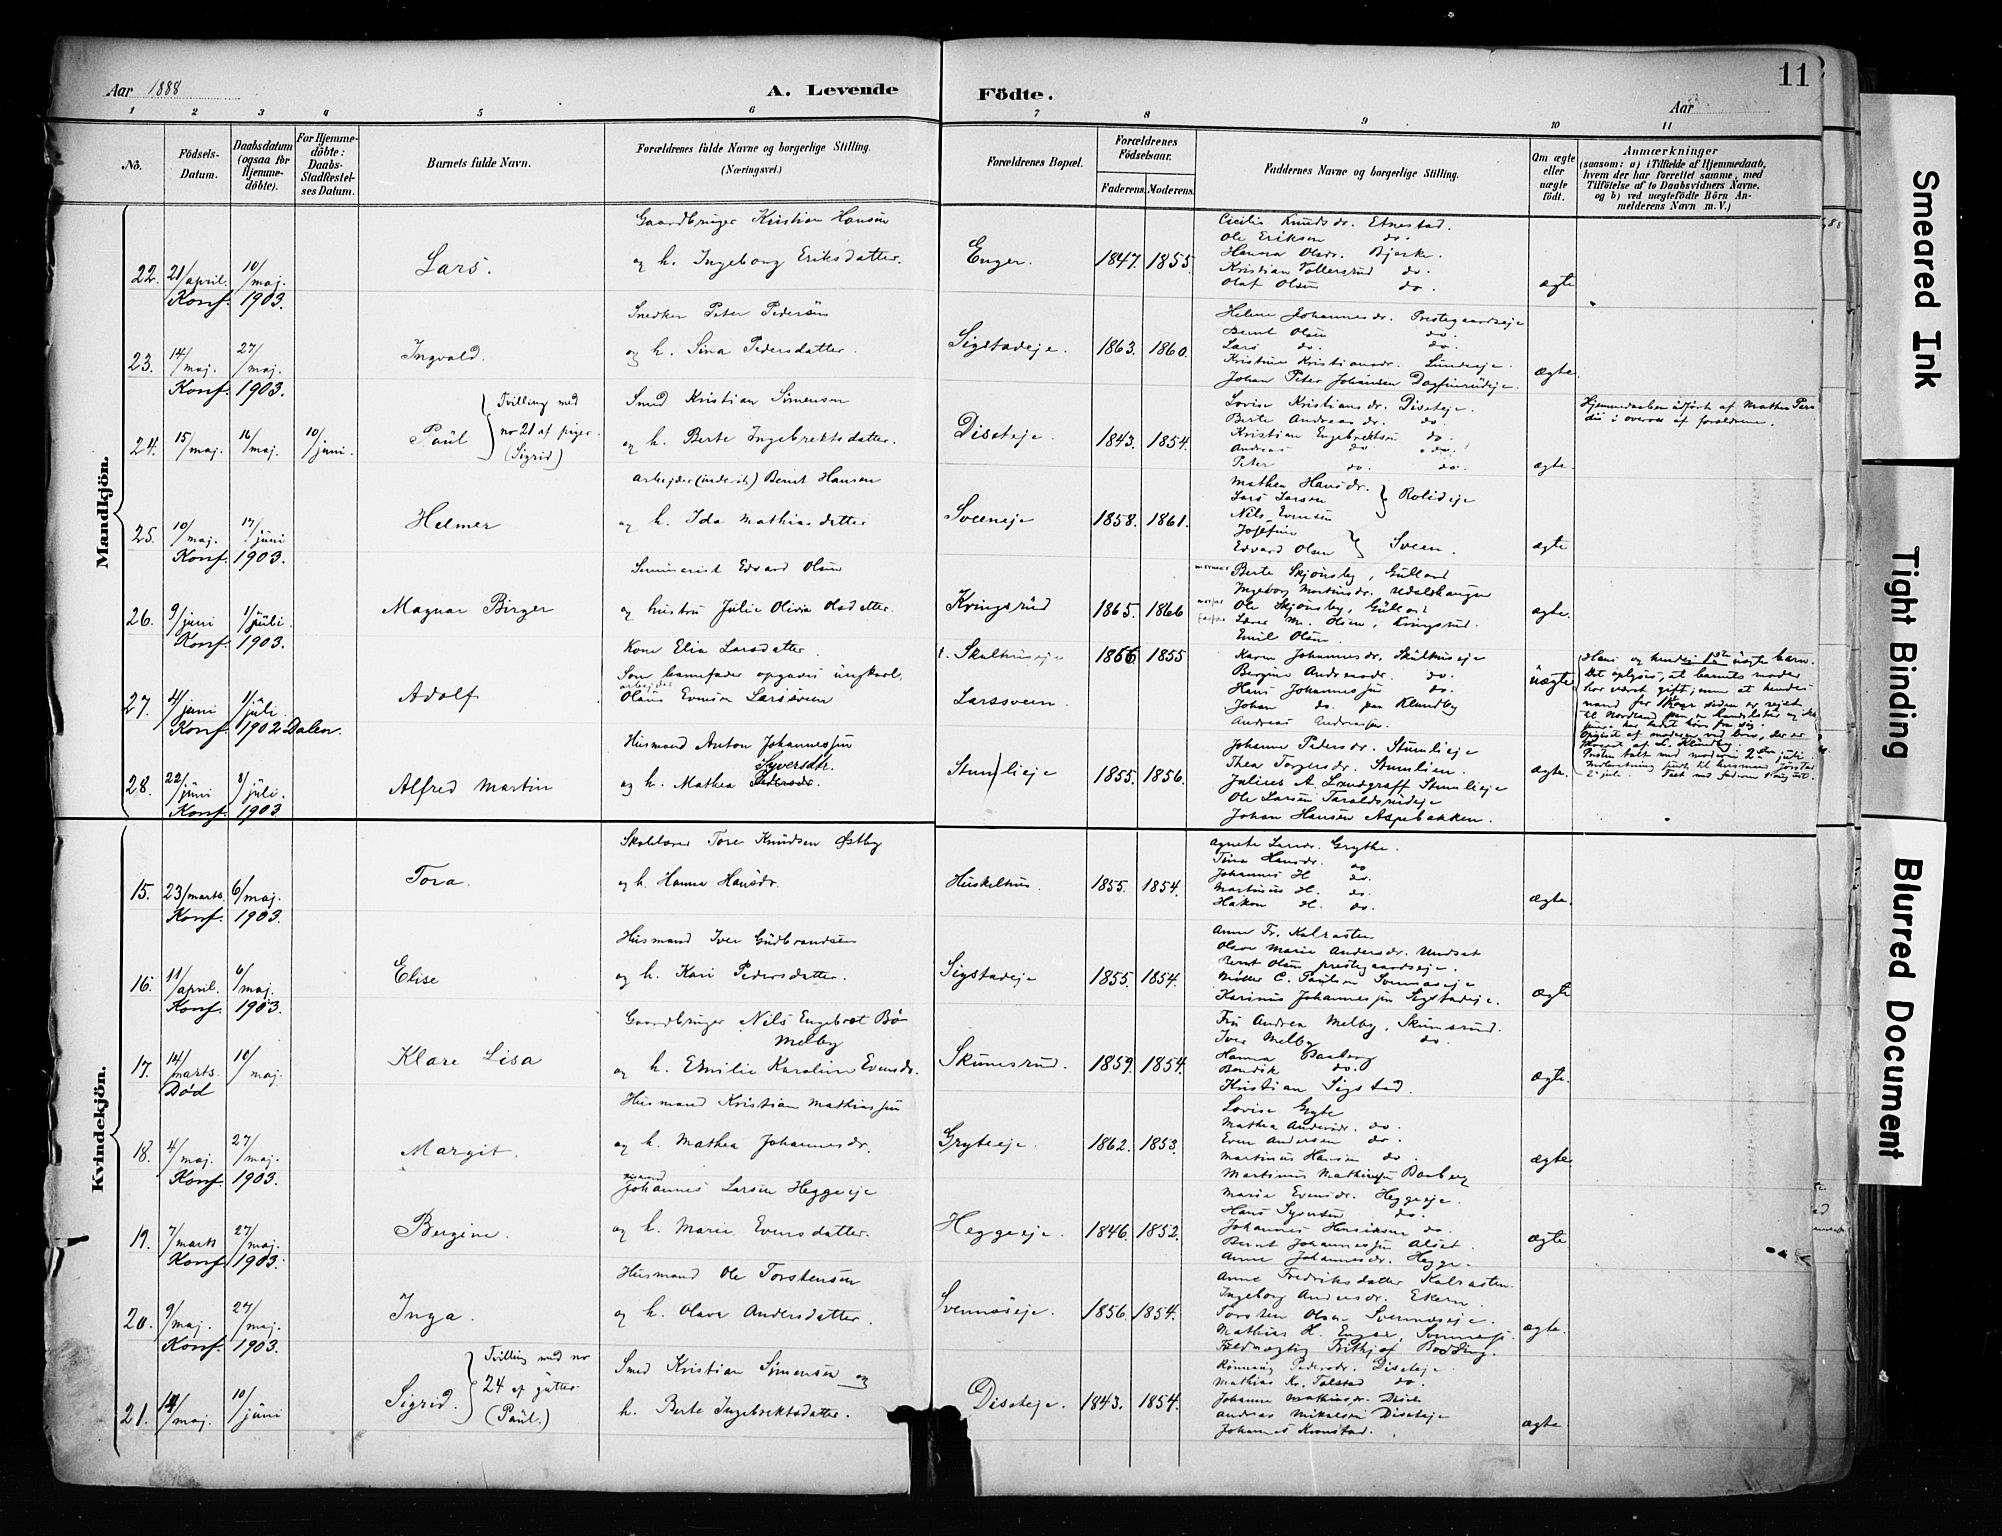 Aar 1888
A. Levende Födte.
11
Aar
1 2 3 4 5 6 7 8 9 10 11
No.
Födsels-Datum.
Daabsdatum (ogsaa for Hjemme-döbte).
For Hjemme-döbte: Daabs-Stadfæstel-ses Datum.
Barnets fulde Navn.
Forældrenes fulde Navne og borgerlige Stilling. (Næringsvei.)
Forældrenes Bopæl.
Forældrenes Födselsaar.
Faderens. Moderens.
Faddernes Navne og borgerlige Stilling.
Om ægte eller uægte födt.
Anmærkninger
(saasom: a) i Tilfælde af Hjemmedaab, hvem der har forrettet samme, med Tilföielse af to Daabsvidners Navne. og b) ved uægtefödte Börn An-melderens Navn m. V.)
Mandkjön.
Gaardbruger Kristian Hansen
22. 21/april. 10/maj. Lars. og h. Ingeborg Eriksdatter. Enger. 1847. 1855. ægte
Konf. 1903.
Cecilie Knudsdr. Etnestad.
Ole Eriksen do.
Hanna Olsdr. Bjerke.
Kristian Tollersrud do.
Olaf Olsen do.
Snedker Peter Pedersen
23. 14/maj. 27/maj. Ingvald. og h. Sina Pedersdatter. Sigstadeje. 1863. 1860. ægte.
Konf. 1903.
Helene Johannesdr. Prestegaardseje
Bernt Olsen do.
Lars do. do.
Kristine Kristiansdr. Lundeeje.
Johan Peter Johansen Dagfinrudeje.
Smed Kristian Simensen
24. 15/maj. 16/maj. 10/juni. Paul Tvilling med no 21 af piger. (Sigrid) og h. Berte Ingebrektsdatter. Diseteje. 1843. 1854. ægte.
Lovise Kristiansdr. Diseteje.
Berte Andreasdr. do.
Kristian Engebrektsen do.
Andreas do do.
Peter do. do.
Hjemmedaaben udført af Mathea
i overvær af forældrene.
Arbejder (inderst) Bernt Hansen
25. 10/maj. 17/juni Helmer og h. Ida Mathiasdatter Sveeneje. 1858. 1861. ægte
Konf. 1903.
Mathea Hansdr.
Lars Larsen
Nils Evensen
Rolideje
Josefine
Edvard Olsen
Sveen.
Seminarist Edvard Olsen
26. 9/juni 1/juli. Magnar Birger og hustru Julie Olivia Olsdatter. Kringsrud 1865. 1866 ægte.
Konf. 1903.
mormor Berte Skjønsby, Gullord
Ingeborg Martinsdr.
morfar Ole Skjønsby, Gullord
farfar Lærer M. Olsen, Kringsrud.
Emil Olsen
Kone Elia Larsdatter.
Som barnefader opgaves ungkarl
arbejder
27. 4/juni 1/juli. Adolf Olaus Evensen Larssveen
Konf. 1902 Dalen.
Skulhuseje 1866 1855
Larssveen.
uægte
Karen Johannesdr. Skulhuseje
Bergine Andersdr. do.
Hans Johannessen do.
Johan do. paa Klundby
Andreas Andreassen
Hans og hendes 1ste uægte barn.
Det oplyses, at barnets moder
har været gift, men at hendes
mand
til Nordland paa
Husmand Anton Johannessen
Syversdtr.
28. 22/juni 3/juli. Alfred Martin og h. Mathea Pedersdr. Stumlieje 1855. 1856. ægte.
Konf. 1903
Johanne Pedersdr. Stumlieje
Thea Torgersdr. Stumlien.
Julius A. Lundgraff Stumlieje
Ole Larsen Taraldsrudeje
Johan Hansen Aspebakken.
Kvindekjön.
Skolelærer Tore Knudsen Østby
15. 23/marts. 6/maj. Tora. og h. Hanna Hansdr. Huskelhus. 1855. 1854. ægte.
Konf. 1903.
Agnete Larsdr. Grythe.
Tina Hansdr. do
Johannes H do.
Martinus H. do.
Hakon H. do.
Husmand Iver Gudbrandsen
16. 11/april. 6/maj. Elise og h. Kari Pedersdatter. Sigstadeje 1855. 1854. ægte
Konf. 1903.
Anne Fr. Kalrasten
Oline Marie Andersdr. Undset
Bernt Olsen prestegaardseje.
Møller C. Paulsen Svennæseje
Karinus Johannessen Sigstadeje.
Gaardbruger Nils Engebret Bø
Melby
17. 14/marts. 10/maj. Klare Lisa og h. Emilie Karoline Evensdr. Skumsrud. 1859. 1854. ægte.
Død
Fru Andrea Melby, Skumsrud.
Iver Melby do.
Hanna Baaberg
Bendik do.
Kristian Sigstad.
Husmand Kristian Mathiassen
18. 4/maj. 27/maj. Margit. og h. Mathea Johannesdr. Gryteeje. 1862. 1853. ægte
Konf. 1903.
Lovise Gryte
Mathea Andersdr. do.
Even Andersen do.
Martinus Hansen do.
Martinus Mathiesen Baaberg
Johannes Larsen Heggeeje
19. 7/marts 27/maj. Bergine. og h. Marie Evensdatter. Heggeeje 1846 1852. ægte
Konf 1903.
Marie Evensdr. Heggeeje.
Hans Syversen do.
Johannes Henriksen do.
Bernt Johannessen Alset.
Anne Johannesdr. Hegge.
Husmand Ole Torstensen
20. 9/maj. 27/maj. Inga. og h. Olava Andersdatter. Svennæseje. 1856. 1854. ægte.
Konf. 1903.
Anne Fredriksdatter Kalrasten.
Ingeborg Andersdr. Ekern.
Torsten Olsen Svennæseje.
Mathias H. Enger,
Fuldmægtig Frithjof Bodding.
Smed Kristian Simensen og
21. 14/maj. 10/juni Sigrid. Tvilling med no 24 af gutter (Paul.) h. Berte Ingebrektsdatter. Diseteje. 1843. 1854. ægte
Rønnaug Pedersdr. Diseteje.
Mathias Kr. Talstad do.
Johanne Mathiasdr. Diset
Andreas Mikalsen Diseteje
Johannes Kronstad.
Smeared Ink
Tight Binding
Blurred Document